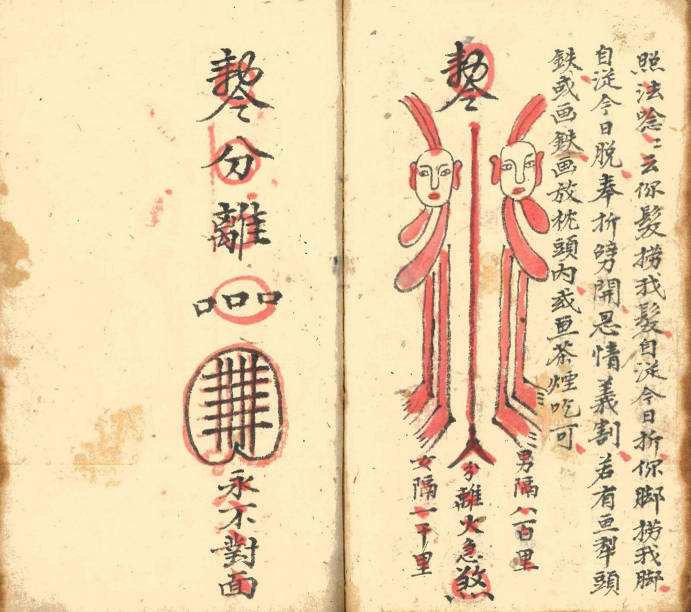 照法唸〻云你髮撈我髮自從今日折你脚撈我脚
自從今日脱奉折劈開恩情義割若有亜犁頭
鉄或画鉄画放枕頭內或亜茶煙吃可
男隔八百里
敕令
分離火急煞
女隔一千里
敕令分離
口口口
永不對面